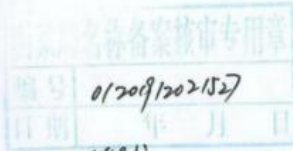 名称备案核审专用章
编号 01201912021527
日期 年 月 日